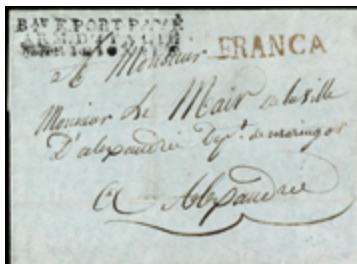 Bau E. PORT PAYÉ
FRANCA
A Monsieur
Monsieur Le Mair de la ville
D'alexandrie Dept. de marengo
A Alexandrie